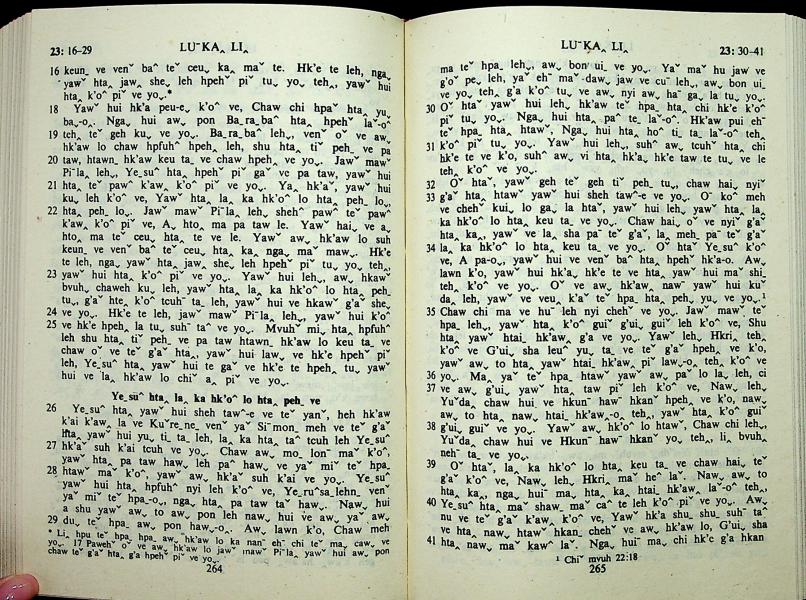 23: 16-29
LUˇKAˬ LIˬ
16 keunˍ ve venˇ baˆ teˇ ceuˬ kaˬ maˇ te. Hk'e te lehˬ ngaˬ
ˇyaw htaˬ jawˬ sheˬ leh hpehˇ piˇ tuˬ yoˬ tehˬ, yawˇ hui
htaˬ k'oˆ piˇ ve yoˬ.*
18 Yawˇ hui hk'a peu-eˬ k'oˆ ve, Chaw chi hpaˇ htaˬ yuˬ
baˬ-oˬ. Ngaˬ hui awˬ pon Baˍraˍbaˆ htaˬ hpehˇ laˇ-oˆ
19 tehˬ teˇ geh ku ve yoˬ. Baˍraˍbaˆ lehˬ, venˇ oˇ ve awˬ
hk'aw lo chaw hpfuhˆ hpeh leh, shu htaˬ tiˇ pehˍ ve pa
20 taw, htawnˬ hk'aw keu taˍ ve chaw hpehˬ ve yoˬ. Jawˇ mawˇ
Piˉla lehˬ, Yeˍsuˆ htaˬ hpehˇ piˇ gaˇ ve pa taw, yawˇ hui
21 htaˬ teˇ pawˆ k'awˬ k'oˆ piˇ ve yoˬ. Yaˬ hk'aˬ, yawˇ hui
kuˬ leh k'oˆ ve, Yawˇ htaˬ laˬ ka hk'oˆ lo hta pehˍ loˬ,
22 htaˬ pehˍ loˬ. Jawˇ mawˇ Piˉla lehˬ, shehˆ pawˆ teˇ pawˆ
k'awˬ k'oˆ piˇ ve, Aˬ hto ma pa taw le. Yawˇ haiˬ ve aˬ
htoˬ ma teˇ ceuˬ htaˬ te ve le. Yawˇ awˬ hk'aw lo suh
keunˍ ve venˇ baˆ teˇ ceuˬ htaˬ kaˬ ngaˬ maˇ mawˬ. Hk'e
te lehˬ ngaˬ yawˇ htaˬ jawˬ sheˬ leh hpehˇ piˇ tuˬ yoˬ tehˬ,
23 yawˇ hui htaˬ k'oˆ piˇ ve yoˬ. Yawˇ hui lehˬ, awˬ hkawˇ
bvuhˬ chaweh kuˬ leh, yawˇ htaˬ laˬ ka hk'oˆ lo htaˬ pehˍ
tuˬ, g'aˇ hteˬ k'oˆ tcuhˇ taˍ leh, yawˇ hui ve hkaw g'aˇ sheˬ
24 ve yoˬ. Hk'e te leh, jawˇ mawˇ Piˉla lehˬ, yawˇ hui k'oˆ
25 ve hk'e hpehˬ la tuˬ suhˉ taˆ ve yoˆ. Mvuhˇ miˬ htaˬ hpfuhˆ
leh shu htaˬ tiˇ pehˍ ve pa taw htawnˬ hk'aw lo keu taˍ ve
chaw oˇ ve teˇ g'aˇ htaˬ, yawˇ hui lawˬ ve hk'e hpehˇ piˇ
leh, Yeˍsuˆ htaˬ yawˇ hui te gaˇ ve hk'e te hpehˬ tuˬ yawˇ
hui ve laˬ hk'aw lo chiˇ aˬ piˇ ve yoˬ.
Yeˍsuˆ htaˬ laˬ ka hk'oˆ lo htaˬ pehˍ ve
26 Yeˍsuˆ htaˬ yawˇ hui sheh tawˆ-e ve teˇ yanˇ, heh hk'aw
k'ai k'awˬ la ve Kuˇreˍneˍ venˇ yaˇ Siˉmonˍ meh ve teˇ g'aˇ
htaˬ yawˇ hui yuˬ tiˍ taˍ leh, laˬ ka htaˬ taˆ tcuh leh Yeˍsuˆ
27 hk'aˇ suhˬ k'ai tcuh ve yoˬ. Chaw awˬ moˍ lonˉ maˇ k'oˆ,
yawˇ htaˬ pa taw hawˬ leh paˆ hawˬ ve yaˇ miˇ teˇ hpaˍ
28 htawˇ maˇ k'oˆ, yawˇ awˬ hk'aˇ suh k'ai ve yoˬ. Yeˍsuˆ
yawˇ hui htaˬ hpfuhˆ nyi leh k'oˆ ve, Yeˍruˆsaˍlehnˍ venˇ
yaˇ miˇ teˇ hpaˍ-oˬ, ngaˬ htaˬ pa taw taˇ hawˬ. Nawˬ hui
a shu yaw awˬ to awˬ pon leh nawˬ hui ve awˬ yaˇ awˬ
29 duˬ teˇ hpaˍ awˬ pon hawˬ-oˬ. Awˬ lawn k'o, Chaw meh
* Liˬ hpu teˇ hpaˍ hpaˍ awˬ hk'aw lo ka nanˇ ehˉ chi teˇ maˬ cawˬ ve
yoˬ. 17 Pawehˇ oˇ ve awˬ hk'aw lo jawˇ mawˇ Piˉla, yawˇ hui awˬ pon
chaw teˇ g'aˇ htaˬ g'a hpehˇ piˇ ve yoˬ.
264
LUˇKAˬ LIˬ
23: 30-41
ma teˇ hpaˍ lehˬ, awˬ bonˇ ui ve yoˬ. Yaˇ maˇ hu jaw ve
g'oˇ peˬ leh, yaˇ ehˉ maˇ dawˬ jaw ve cuˇ lehˬ, aw bon ui
ve yoˬ tehˬ g'a k'oˆ tuˬ ve awˬ nyi awˬ haˇ gaˬ la tuˬ yoˬ.
30 Oˇ htaˇ yawˇ hui leh, hk'aw teˇ hpaˍ htaˬ chi hk'e k'oˆ
piˇ tuˬ yoˬ. Ngaˬ hui htaˬ paˆ teˍ laˇ-oˆ. Hk'aw pui ehˉ
teˇ hpaˍ htaˬ htawˇ, Ngaˬ hui htaˬ hoˆ tiˍ taˍ laˇ-oˆ tehˬ
31 k'oˆ piˇ tuˬ yoˬ. Yawˇ hui lehˬ, suhˆ awˬ tcuhˇ htaˬ chi
hk'e te ve k'o, suhˆ awˬ vi htaˬ hk'aˬ hk'e taw te tuˬ ve le
tehˬ k'oˆ ve yoˬ.
32 Oˇ htaˇ, yawˇ geh teˇ geh tiˇ pehˍ tuˬ, chaw haiˬ nyiˇ
33 g'aˇ htaˬ htawˇ yawˇ hui sheh tawˆ-e ve yoˬ. Oˇ koˆ meh
ve chehˇ kuiˬ lo gaˬ la htaˇ, yawˇ hui lehˬ yawˇ htaˬ laˬ
ka hk'oˆ lo htaˬ keu taˍ ve yoˬ. Chaw haiˬ oˇ ve nyiˇ g'aˇ
htaˬ kaˬ, yawˇ ve laˬ sha paˇ teˇ g'aˇ, laˬ meh pa teˇ g'aˇ
34 laˬ ka hk'oˆ lo htaˬ keu taˍ ve yoˬ. Oˇ htaˇ Yeˍsuˆ k'oˆ
ve, A pa-oˬ, yawˇ hui ve venˇ baˆ htaˬ hpehˇ hk'a-o. Awˬ
lawn k'o, yawˇ hui hk'aˬ hk'e te ve htaˬ yawˇ hui maˇ shiˍ
tehˬ k'oˆ ve yoˬ. Oˇ ve awˬ hk'aw nawˇ yawˇ hui kuˇ
daˬ leh, yawˇ ve veuˬ k'aˇ teˇ hpaˍ htaˬ pehˬ yuˬ ve yoˬ.¹
35 Chaw chi ma ve huˇ leh nyi chehˇ ve yoˬ. Jawˇ mawˇ teˇ
hpaˍ lehˬ, yawˇ htaˬ k'oˆ guiˇ g'uiˬ guiˇ leh k'oˆ ve, Shu
htaˬ yawˇ htaiˍ hk'awˬ g'a ve yoˬ. Yawˇ lehˬ, Hkriˬ tehˬ
k'oˆ ve G'uiˬ sha leuˇ yuˬ taˍ ve teˇ g'aˇ hpehˬ ve k'o,
yawˇ aw to htaˬ yawˇ htaiˍ hk'awˬ piˇ lawˬ-oˬ tehˬ k'oˆ ve
36 yoˬ. Maˬ yaˇ teˇ hpaˍ htawˇ yawˇ awˬ paˇ lo laˬ leh, ci
37 ve awˬ g'uiˬ yawˇ htaˬ taw piˇ leh k'oˆ ve, Naw lehˬ
Yuˇdaˬ chaw hui ve hkunˉ hawˉ hkanˇ hpehˬ ve k'o, nawˬ
aw to htaˬ nawˬ htaiˍ hk'awˬ-oˬ tehˬ, yawˇ htaˬ k'oˆ guiˇ
38 g'uiˬ guiˇ ve yoˬ. Yawˇ awˬ hk'oˆ lo htawˇ, Chaw chi lehˬ
Yuˇdaˬ chaw hui ve Hkunˉ hawˉ hkanˇ yoˬ tehˬ, liˬ bvuhˬ
nehˇ taˍ ve yoˬ.
39 Oˇ htaˇ, laˬ ka hk'oˆ lo htaˬ keu taˍ ve chaw haiˬ teˇ
g'aˇ k'oˆ ve, Naw lehˬ Hkriˬ maˇ heˆ laˇ. Naw aw to
htaˬ kaˬ, ngaˬ huiˇ maˬ htaˬ kaˬ htaiˍ hk'awˬ laˇ-oˆ tehˬ,
40 Yeˍsuˆ htaˬ maˇ shawˬ maˇ caˆ te leh k'oˆ piˇ ve yoˬ. Awˬ
nu ve teˇ g'aˇ k'awˬ k'oˆ ve, Yawˇ hk'a shuˬ shuˬ suhˇ taˍ
ve htaˬ nawˬ htawˇ hkanˬ chehˇ ve awˬ hk'aw lo, G'uiˬ sha
41 htaˬ nawˬ maˇ kawˆ laˇ. Ngaˬ huiˇ maˬ chi hk'e g'a hkan
¹ Chiˇ mvuh 22:18
265